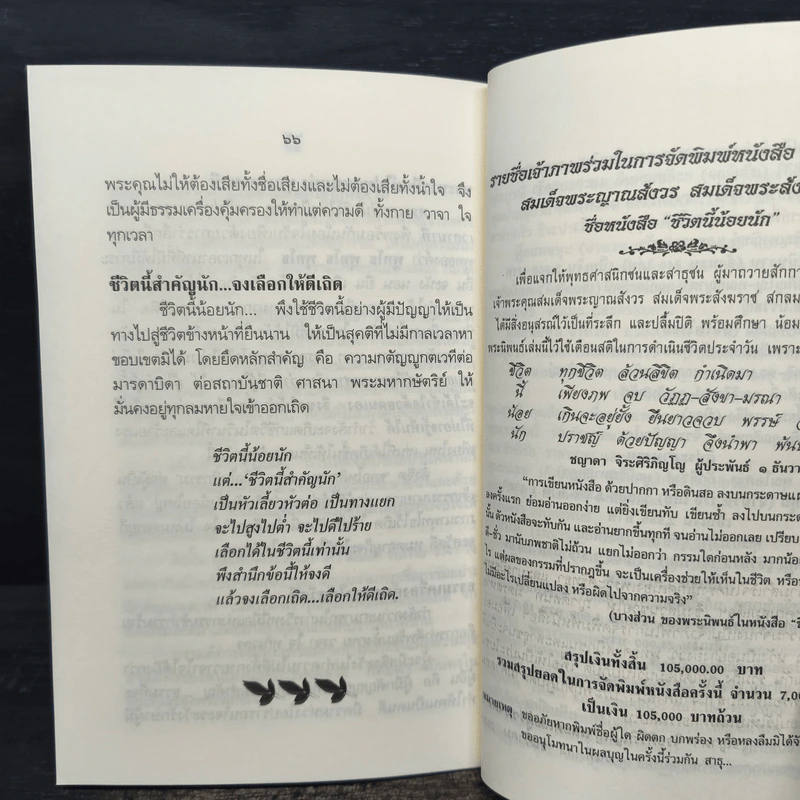 ๖๖
พระคุณไม่ให้ต้องเสียทั้งชื่อเสียงและไม่ต้องเสียทั้งน้ำใจ จึง
เป็นผู้มีธรรมเครื่องคุ้มครองให้ทำแต่ความดี ทั้งกาย วาจา ใจ
ทุกเวลา
ชีวิตนี้สำคัญนัก...จงเลือกให้ดีเถิด
ชีวิตนี้น้อยนัก... พึงใช้ชีวิตนี้อย่างผู้มีปัญญาให้เป็น
ทางไปสู่ชีวิตข้างหน้าที่ยืนนาน ให้เป็นสุคติที่ไม่มีกาลเวลาหา
ขอบเขตมิได้ โดยยึดหลักสำคัญ คือ ความกตัญญูกตเวทีต่อ
มารดาบิดา ต่อสถาบันชาติ ศาสนา พระมหากษัตริย์ ให้
มั่นคงอยู่ทุกลมหายใจเข้าออกเถิด
ชีวิตนี้น้อยนัก
แต่...‘ชีวิตนี้สำคัญนัก’
เป็นหัวเลี้ยวหัวต่อ เป็นทางแยก
จะไปสูงไปต่ำ จะไปดีไปร้าย
เลือกได้ในชีวิตนี้เท่านั้น
พึงสำนึกข้อนี้ให้จงดี
แล้วจงเลือกเถิด...เลือกให้ดีเถิด.
รายชื่อเจ้าภาพร่วมในการจัดพิมพ์หนังสือ
สมเด็จพระญาณสังวร สมเด็จพระสัง
ชื่อหนังสือ “ชีวิตนี้น้อยนัก”
เพื่อแจกให้พุทธศาสนิกชนและสาธุชน ผู้มาถวายสักกา
เจ้าพระคุณสมเด็จพระญาณสังวร สมเด็จพระสังฆราช สกลม
ได้มีสิ่งอนุสรณ์ไว้เป็นที่ระลึก และปลื้มปิติ พร้อมศึกษา น้อม
พระนิพนธ์เล่มนี้ไว้ใช้เตือนสติในการดำเนินชีวิตประจำวัน เพราะ
ชีวิต ทุกชีวิต ล้วนลิขิต กำเนิดมา
นี้ เพียงภพ จบ วัฏฏ-สังขา-มรณา
น้อย เกินจะอยู่ยั้ง ยืนยาวจวบ พรรษ์
นัก ปราชญ์ ด้วยปัญญา จึงนำพา พ้น
ชญาดา จิระศิริภิญโญ ผู้ประพันธ์ ๑ ธันวา
“การเขียนหนังสือ ด้วยปากกา หรือดินสอ ลงบนกระดาษแ
ลงครั้งแรก ย่อมอ่านออกง่าย แต่ยิ่งเขียนทับ เขียนซ้ำ ลงไปบนกระดา
นั้น ตัวหนังสือจะทับกัน และอ่านยากขึ้นทุกที จนอ่านไม่ออกเลย เปรียบ
ดี-ชั่ว มานับภพชาติไม่ถ้วน แยกไม่ออกว่า กรรมใดก่อนหลัง มากน้อ
ไร แต่ผลของกรรมที่ปรากฏขึ้น จะเป็นเครื่องช่วยให้เห็นในชีวิต หรือ
ไม่มีอะไรเปลี่ยนแปลง หรือผิดไปจากความจริง”
(บางส่วน ของพระนิพนธ์ในหนังสือ “ชี
สรุปเงินทั้งสิ้น 105,000.00 บาท
รวมสรุปยอดในการจัดพิมพ์หนังสือครั้งนี้ จำนวน 7,0
เป็นเงิน 105,000 บาทถ้วน
หมายเหตุ ขออภัยหากพิมพ์ชื่อผู้ใด ผิดตก บกพร่อง หรือหลงลืมมิได้จั
ขออนุโมทนาในผลบุญในครั้งนี้ร่วมกัน สาธุ...